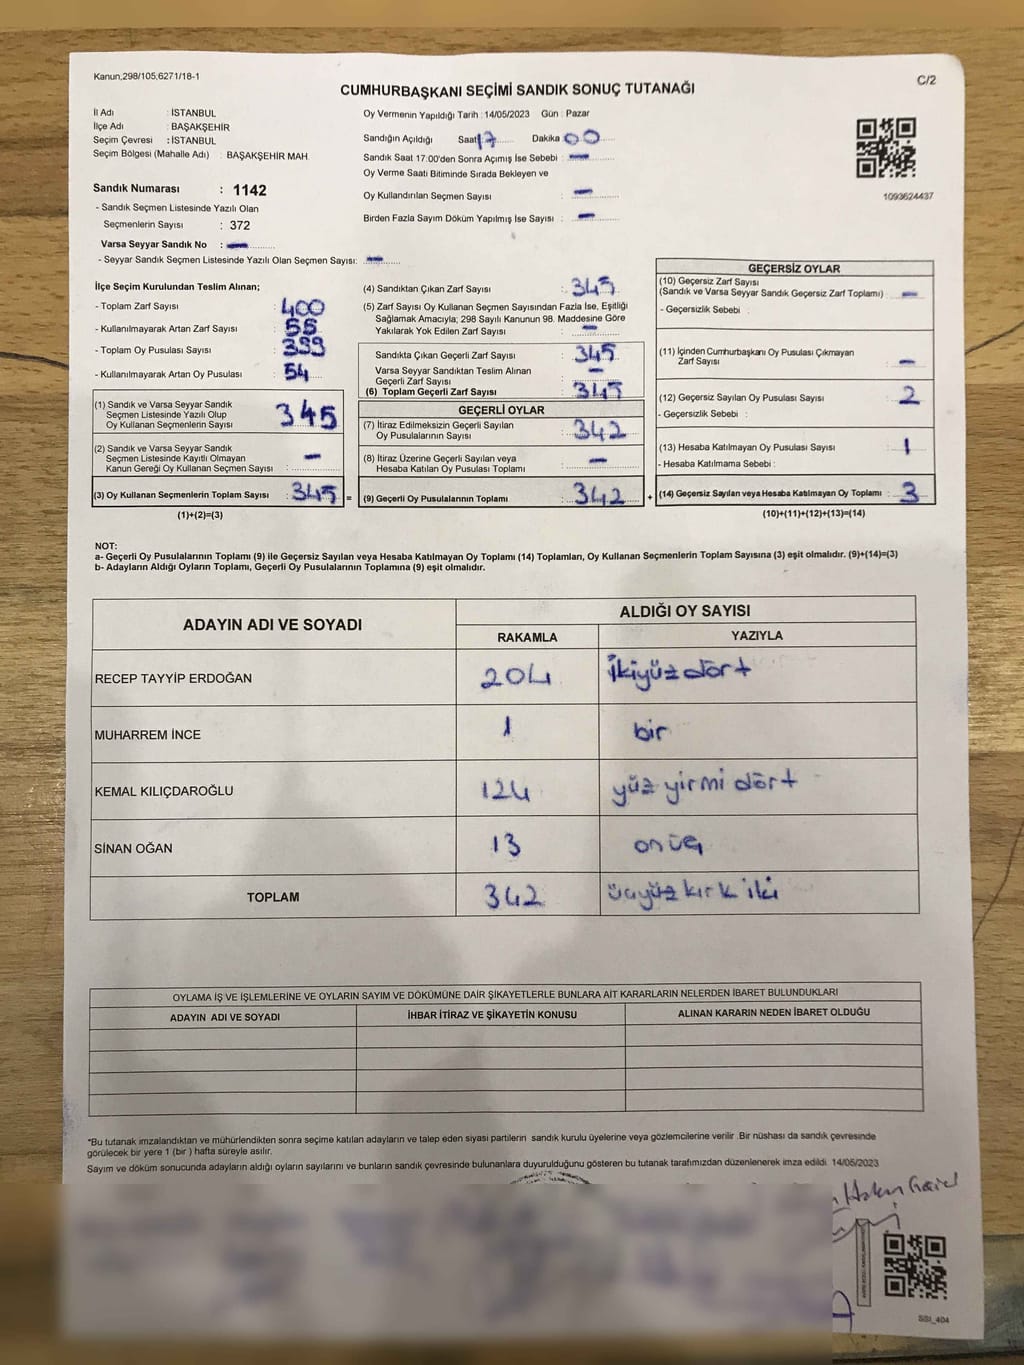 Kanun,298/105,6271/18-1
C/2
CUMHURBAŞKANI SEÇİMİ SANDIK SONUÇ TUTANAĞI
İl Adı : İSTANBUL
İlçe Adı : BAŞAKŞEHİR
Seçim Çevresi : İSTANBUL
Seçim Bölgesi (Mahalle Adı) : BAŞAKŞEHİR MAH.
Sandık Numarası : 1142
- Sandık Seçmen Listesinde Yazılı Olan
Seçmenlerin Sayısı : 372
Varsa Seyyar Sandık No : —
- Seyyar Sandık Seçmen Listesinde Yazılı Olan Seçmen Sayısı: —
Oy Vermenin Yapıldığı Tarih : 14/05/2023 Gün : Pazar
Sandığın Açıldığı Saat 17 Dakika 00
Sandık Saat 17.00'den Sonra Açımış İse Sebebi : —
Oy Verme Saati Bitiminde Sırada Bekleyen ve
Oy Kullandırılan Seçmen Sayısı : —
Birden Fazla Sayım Döküm Yapılmış İse Sayısı : —
1093624437
İlçe Seçim Kurulundan Teslim Alınan;
- Toplam Zarf Sayısı : 400
- Kullanılmayarak Artan Zarf Sayısı : 55
- Toplam Oy Pusulası Sayısı : 399
- Kullanılmayarak Artan Oy Pusulası : 54
(1) Sandık ve Varsa Seyyar Sandık
Seçmen Listesinde Yazılı Olup
Oy Kullanan Seçmenlerin Sayısı : 345
(2) Sandık ve Varsa Seyyar Sandık
Seçmen Listesinde Kayıtlı Olmayan
Kanun Gereği Oy Kullanan Seçmen Sayısı : —
(3) Oy Kullanan Seçmenlerin Toplam Sayısı : 345 =
(1)+(2)=(3)
(4) Sandıktan Çıkan Zarf Sayısı : 345
(5) Zarf Sayısı Oy Kullanan Seçmen Sayısından Fazla İse, Eşitliği
Sağlamak Amacıyla; 298 Sayılı Kanunun 98. Maddesine Göre
Yakılarak Yok Edilen Zarf Sayısı : —
Sandıkta Çıkan Geçerli Zarf Sayısı : 345
Varsa Seyyar Sandıktan Teslim Alınan
Geçerli Zarf Sayısı : —
(6) Toplam Geçerli Zarf Sayısı : 345
GEÇERLİ OYLAR
(7) İtiraz Edilmeksizin Geçerli Sayılan
Oy Pusulalarının Sayısı : 342
(8) İtiraz Üzerine Geçerli Sayılan veya
Hesaba Katılan Oy Pusulası Toplamı : —
(9) Geçerli Oy Pusulalarının Toplamı : 342 +
GEÇERSİZ OYLAR
(10) Geçersiz Zarf Sayısı
(Sandık ve Varsa Seyyar Sandık Geçersiz Zarf Toplamı) : —
- Geçersizlik Sebebi :
(11) İçinden Cumhurbaşkanı Oy Pusulası Çıkmayan
Zarf Sayısı : —
(12) Geçersiz Sayılan Oy Pusulası Sayısı : 2
- Geçersizlik Sebebi :
(13) Hesaba Katılmayan Oy Pusulası Sayısı : 1
- Hesaba Katılmama Sebebi :
(14) Geçersiz Sayılan veya Hesaba Katılmayan Oy Toplamı : 3
(10)+(11)+(12)+(13)=(14)
NOT:
a- Geçerli Oy Pusulalarının Toplamı (9) ile Geçersiz Sayılan veya Hesaba Katılmayan Oy Toplamı (14) Toplamları, Oy Kullanan Seçmenlerin Toplam Sayısına (3) eşit olmalıdır. (9)+(14)=(3)
b- Adayların Aldığı Oyların Toplamı, Geçerli Oy Pusulalarının Toplamına (9) eşit olmalıdır.
ADAYIN ADI VE SOYADI
ALDIĞI OY SAYISI
RAKAMLA YAZIYLA
RECEP TAYYİP ERDOĞAN 204 İkiyüzdört
MUHARREM İNCE 1 bir
KEMAL KILIÇDAROĞLU 124 yüz yirmi dört
SİNAN OĞAN 13 onüç
TOPLAM 342 üçyüz kırk iki
OYLAMA İŞ VE İŞLEMLERİNE VE OYLARIN SAYIM VE DÖKÜMÜNE DAİR ŞİKAYETLERLE BUNLARA AİT KARARLARIN NELERDEN İBARET BULUNDUKLARI
ADAYIN ADI VE SOYADI İHBAR İTİRAZ VE ŞİKAYETİN KONUSU ALINAN KARARIN NEDEN İBARET OLDUĞU
*Bu tutanak imzalandıktan ve mühürlendikten sonra seçime katılan adayların ve talep eden siyasi partilerin sandık kurulu üyelerine veya gözlemcilerine verilir. Bir nüshası da sandık çevresinde
görülecek bir yere 1 (bir) hafta süreyle asılır.
Sayım ve döküm sonucunda adayların aldığı oyların sayılarını ve bunların sandık çevresinde bulunanlara duyurulduğunu gösteren bu tutanak tarafımızdan düzenlenerek imza edildi. 14/05/2023
SSI_404